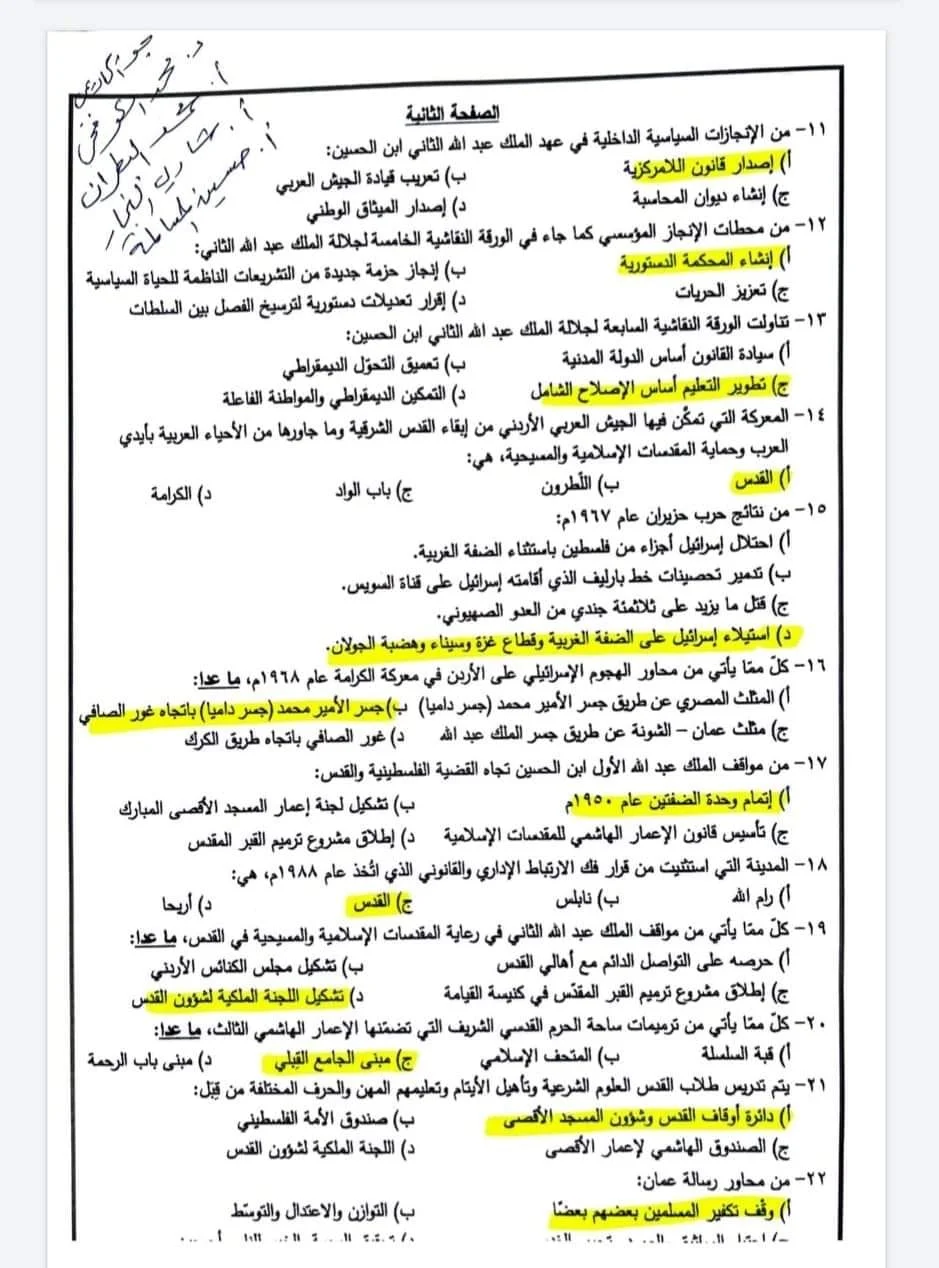 جو اكاديمي
د. محمد
أ.
أ. شادي النجار
أ. حسين
الصفحة الثانية
١١- من الإنجازات السياسية الداخلية في عهد الملك عبد الله الثاني ابن الحسين:
أ) إصدار قانون اللامركزية ب) تعريب قيادة الجيش العربي
ج) إنشاء ديوان المحاسبة د) إصدار الميثاق الوطني
١٢- من محطات الإنجاز المؤسسي كما جاء في الورقة النقاشية الخامسة لجلالة الملك عبد الله الثاني:
أ) إنشاء المحكمة الدستورية ب) إنجاز حزمة جديدة من التشريعات الناظمة للحياة السياسية
ج) تعزيز الحريات د) إقرار تعديلات دستورية لترسيخ الفصل بين السلطات
١٣- تناولت الورقة النقاشية السابعة لجلالة الملك عبد الله الثاني ابن الحسين:
أ) سيادة القانون أساس الدولة المدنية ب) تعميق التحوّل الديمقراطي
ج) تطوير التعليم أساس الإصلاح الشامل د) التمكين الديمقراطي والمواطنة الفاعلة
١٤- المعركة التي تمكّن فيها الجيش العربي الأردني من إبقاء القدس الشرقية وما جاورها من الأحياء العربية بأيدي
العرب وحماية المقدسات الإسلامية والمسيحية، هي:
أ) القدس ب) اللّطرون ج) باب الواد د) الكرامة
١٥- من نتائج حرب حزيران عام ١٩٦٧م:
أ) احتلال إسرائيل أجزاء من فلسطين باستثناء الضفة الغربية.
ب) تدمير تحصينات خط بارليف الذي أقامته إسرائيل على قناة السويس.
ج) قتل ما يزيد على ثلاثمئة جندي من العدو الصهيوني.
د) استيلاء إسرائيل على الضفة الغربية وقطاع غزة وسيناء وهضبة الجولان.
١٦- كلّ ممّا يأتي من محاور الهجوم الإسرائيلي على الأردن في معركة الكرامة عام ١٩٦٨م، ما عدا:
أ) المثلث المصري عن طريق جسر الأمير محمد (جسر داميا) ب) جسر الأمير محمد (جسر داميا) باتجاه غور الصافي
ج) مثلث عمان – الشونة عن طريق جسر الملك عبد الله د) غور الصافي باتجاه طريق الكرك
١٧- من مواقف الملك عبد الله الأول ابن الحسين تجاه القضية الفلسطينية والقدس:
أ) إتمام وحدة الضفتين عام ١٩٥٠م ب) تشكيل لجنة إعمار المسجد الأقصى المبارك
ج) تأسيس قانون الإعمار الهاشمي للمقدسات الإسلامية د) إطلاق مشروع ترميم القبر المقدس
١٨- المدينة التي استثنيت من قرار فك الارتباط الإداري والقانوني الذي اتُّخذ عام ١٩٨٨م، هي:
أ) رام الله ب) نابلس ج) القدس د) أريحا
١٩- كلّ ممّا يأتي من مواقف الملك عبد الله الثاني في رعاية المقدسات الإسلامية والمسيحية في القدس، ما عدا:
أ) حرصه على التواصل الدائم مع أهالي القدس ب) تشكيل مجلس الكنائس الأردني
ج) إطلاق مشروع ترميم القبر المقدّس في كنيسة القيامة د) تشكيل اللجنة الملكية لشؤون القدس
٢٠- كلّ ممّا يأتي من ترميمات ساحة الحرم القدسي الشريف التي تضمّنها الإعمار الهاشمي الثالث، ما عدا:
أ) قبة السلسلة ب) المتحف الإسلامي ج) مبنى الجامع القِبلي د) مبنى باب الرحمة
٢١- يتم تدريس طلاب القدس العلوم الشرعية وتأهيل الأيتام وتعليمهم المهن والحرف المختلفة من قِبَل:
أ) دائرة أوقاف القدس وشؤون المسجد الأقصى ب) صندوق الأمة الفلسطيني
ج) الصندوق الهاشمي لإعمار الأقصى د) اللجنة الملكية لشؤون القدس
٢٢- من محاور رسالة عمان:
أ) وقْف تكفير المسلمين بعضهم بعضًا ب) التوازن والاعتدال والتوسّط